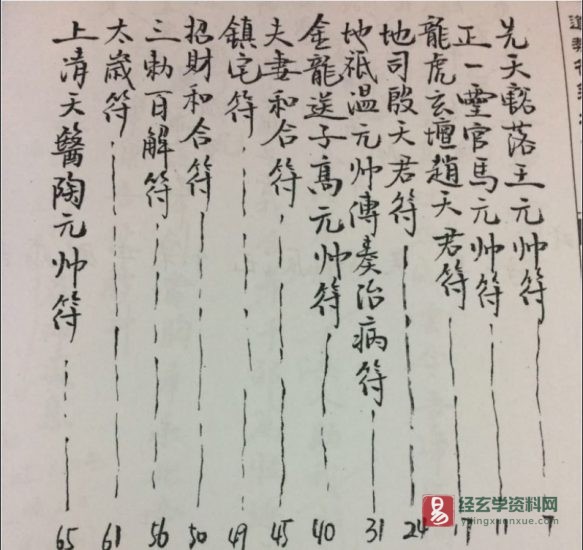 先天豁落王元帅符 7
正一靈官馬元帅符 11
龍虎玄壇趙天君符 17
地司殷天君符 24
地祇温元帅傳奏治病符 31
金龍送子高元帅符 40
夫妻和合符 45
鎮宅符 49
招財和合符 50
三勅百解符 56
太歲符 61
上清天醫陶元帅符 65
易
经玄学资料网
yijingxuanxue.com